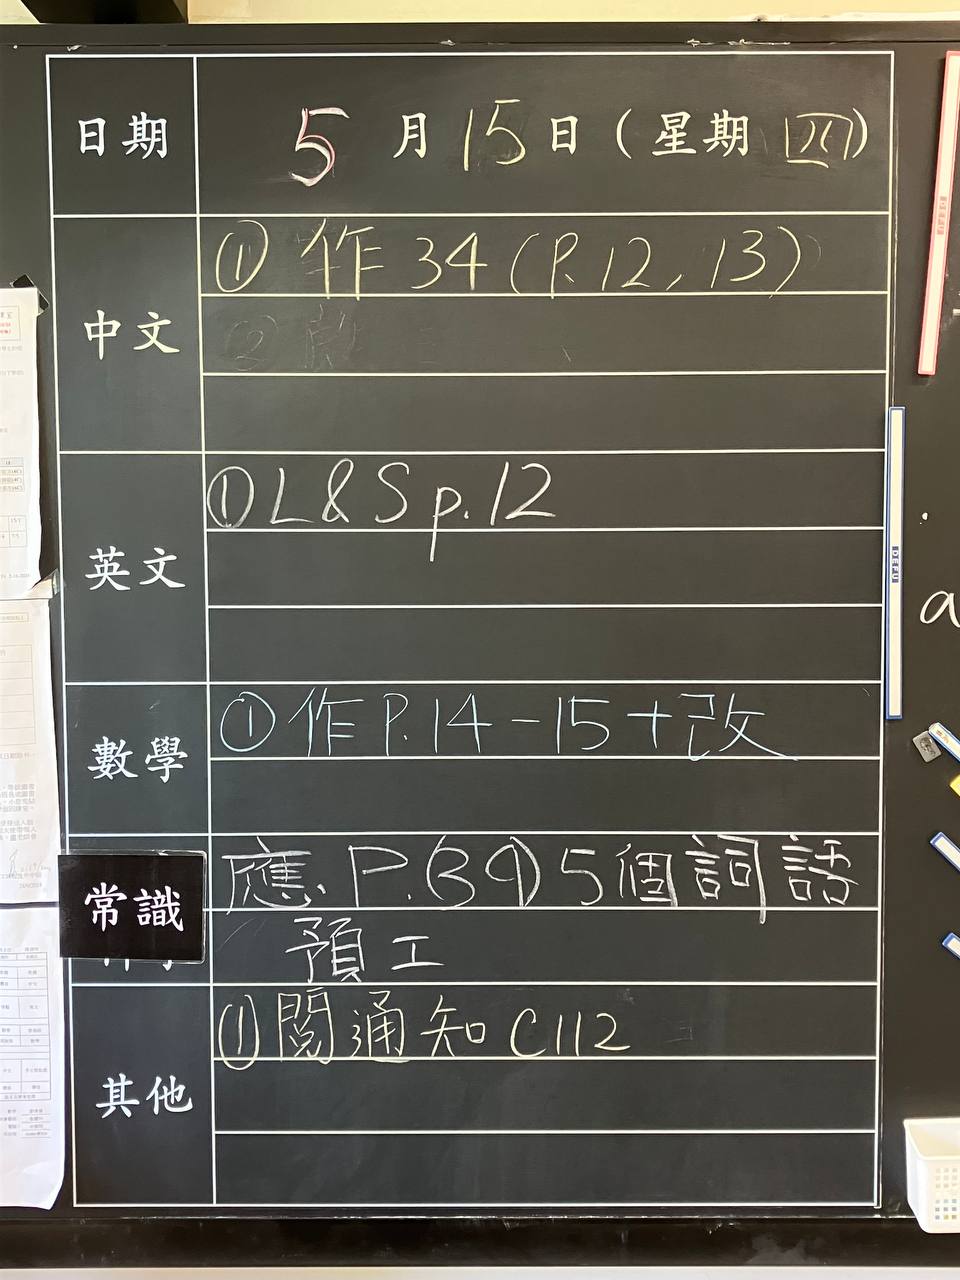 日期 5月15日(星期四)
中文 ① 作34(P.12, 13)
英文 ① L&S p.12
數學 ① 作P.14-15+改
常識 應.P.(39)5個詞語
預工
其他 ① 閱通知C112